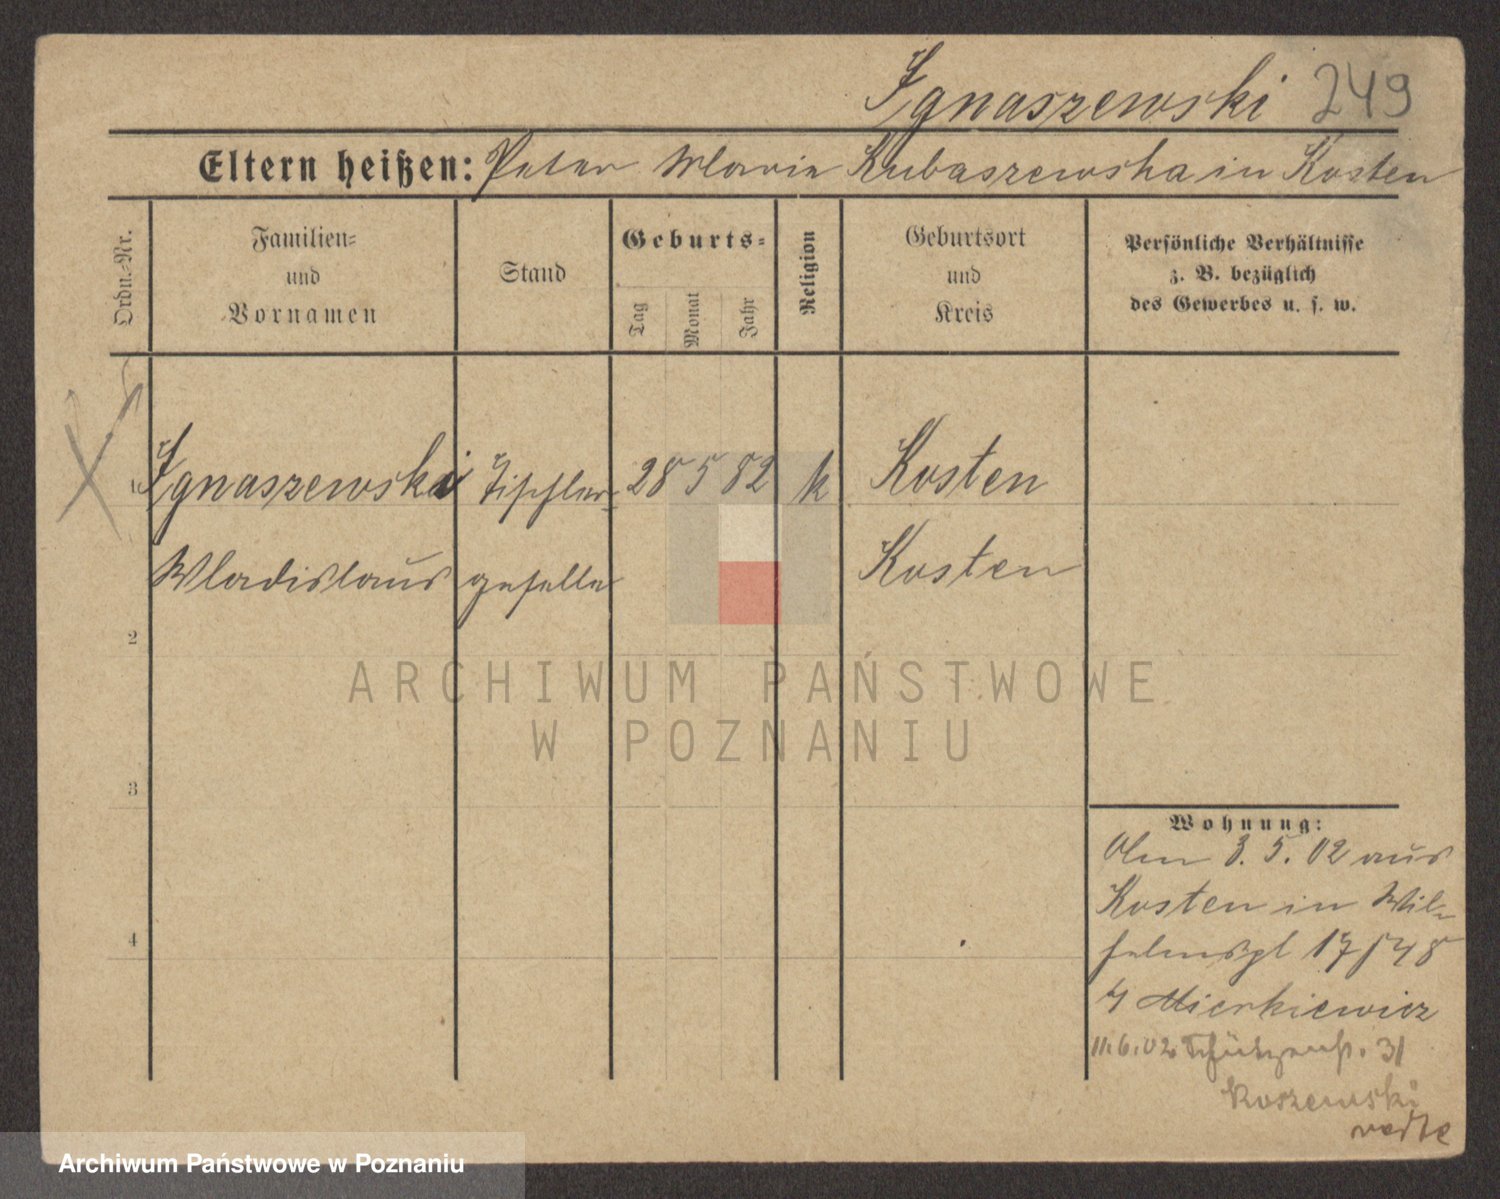 Ignaszewski 249
Eltern heißen: Peter Marie Kubaszewska in Kosten
Ordn.-Nr.
Familien-
und
Vornamen
Stand
Geburts-
Tag
Monat
Jahr
Religion
Geburtsort
und
Kreis
Persönliche Verhältnisse
z. B. bezüglich
des Gewerbes u. s. w.
1 Ignaszewski Tischler- 28 5 82 k Kosten
Wladislaus geselle Kosten
2
3
4
Wohnung:
Am 3. 5. 02 aus
Kosten in Wil-
helmspl 17/18
Mierkiewicz
11.6.02 Schützenstr. 31
Koszewski
ARCHIWUM PAŃSTWOWE
W POZNANIU
Archiwum Państwowe w Poznaniu